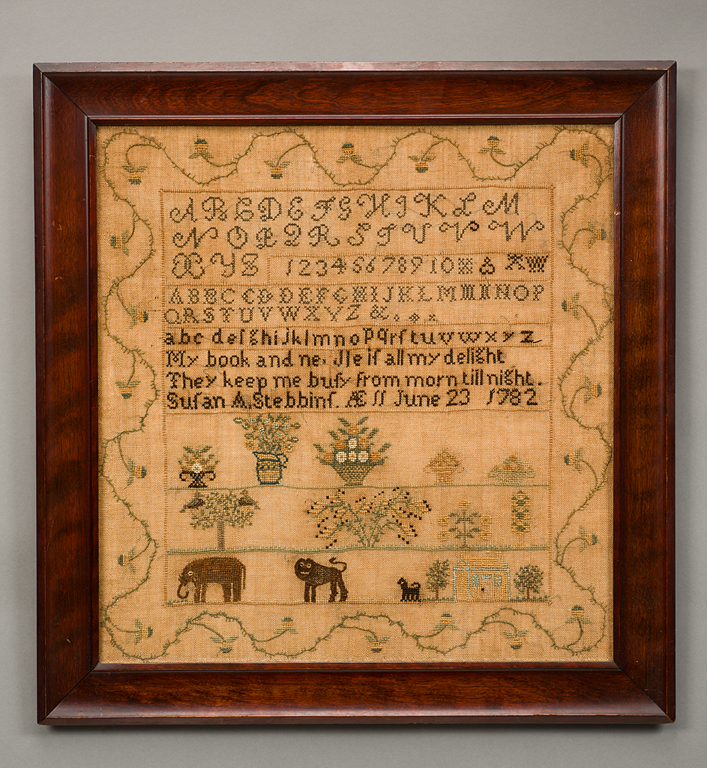 A B C D E F G H I K L M
N O P Q R S T U V W
X Y Z 1 2 3 4 5 6 7 8 9 10
A B C D E F G H I J K L M N O P
Q R S T U V W X Y Z &.
a b c d e f g h i j k l m n o p q r ſ t u v w x y z
My book and ne, Jle iſ all my delight
They keep me buſy from morn till night.
Suſan A. Stebbinſ. Æ 11 June 23 1782